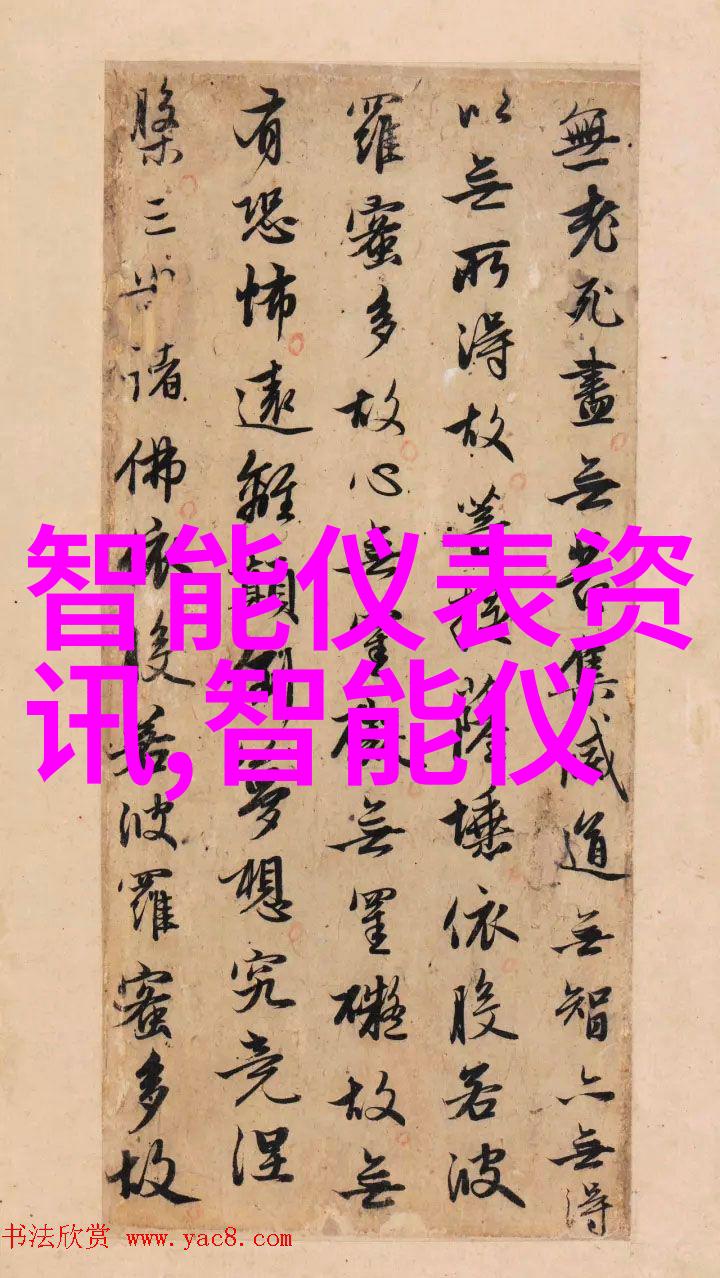 無老死盡无苦集滅道无智亦無得
以无所得故菩提薩埵依般若波
羅蜜多故心無罣礙无罣礙故無
有恐怖遠離顛倒夢想究竟涅
槃三世諸佛依般若波羅蜜多故
智能仪表资
讯,智能仪
书法欣赏 www.yac8.com